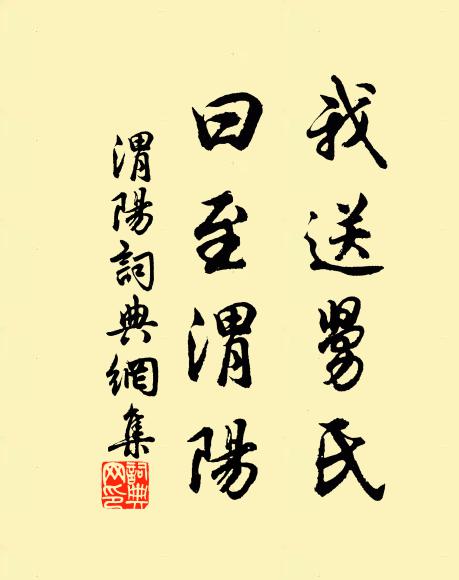 我送舅氏
曰至渭陽
渭陽詞典網集
詞典網印